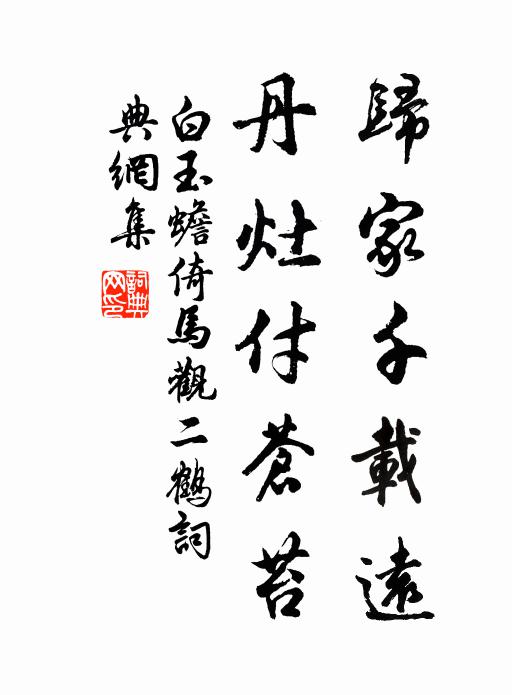 歸家千載遠
丹灶付蒼苔
白玉蟾倚馬觀二鶴詞
典網集
詞典網印